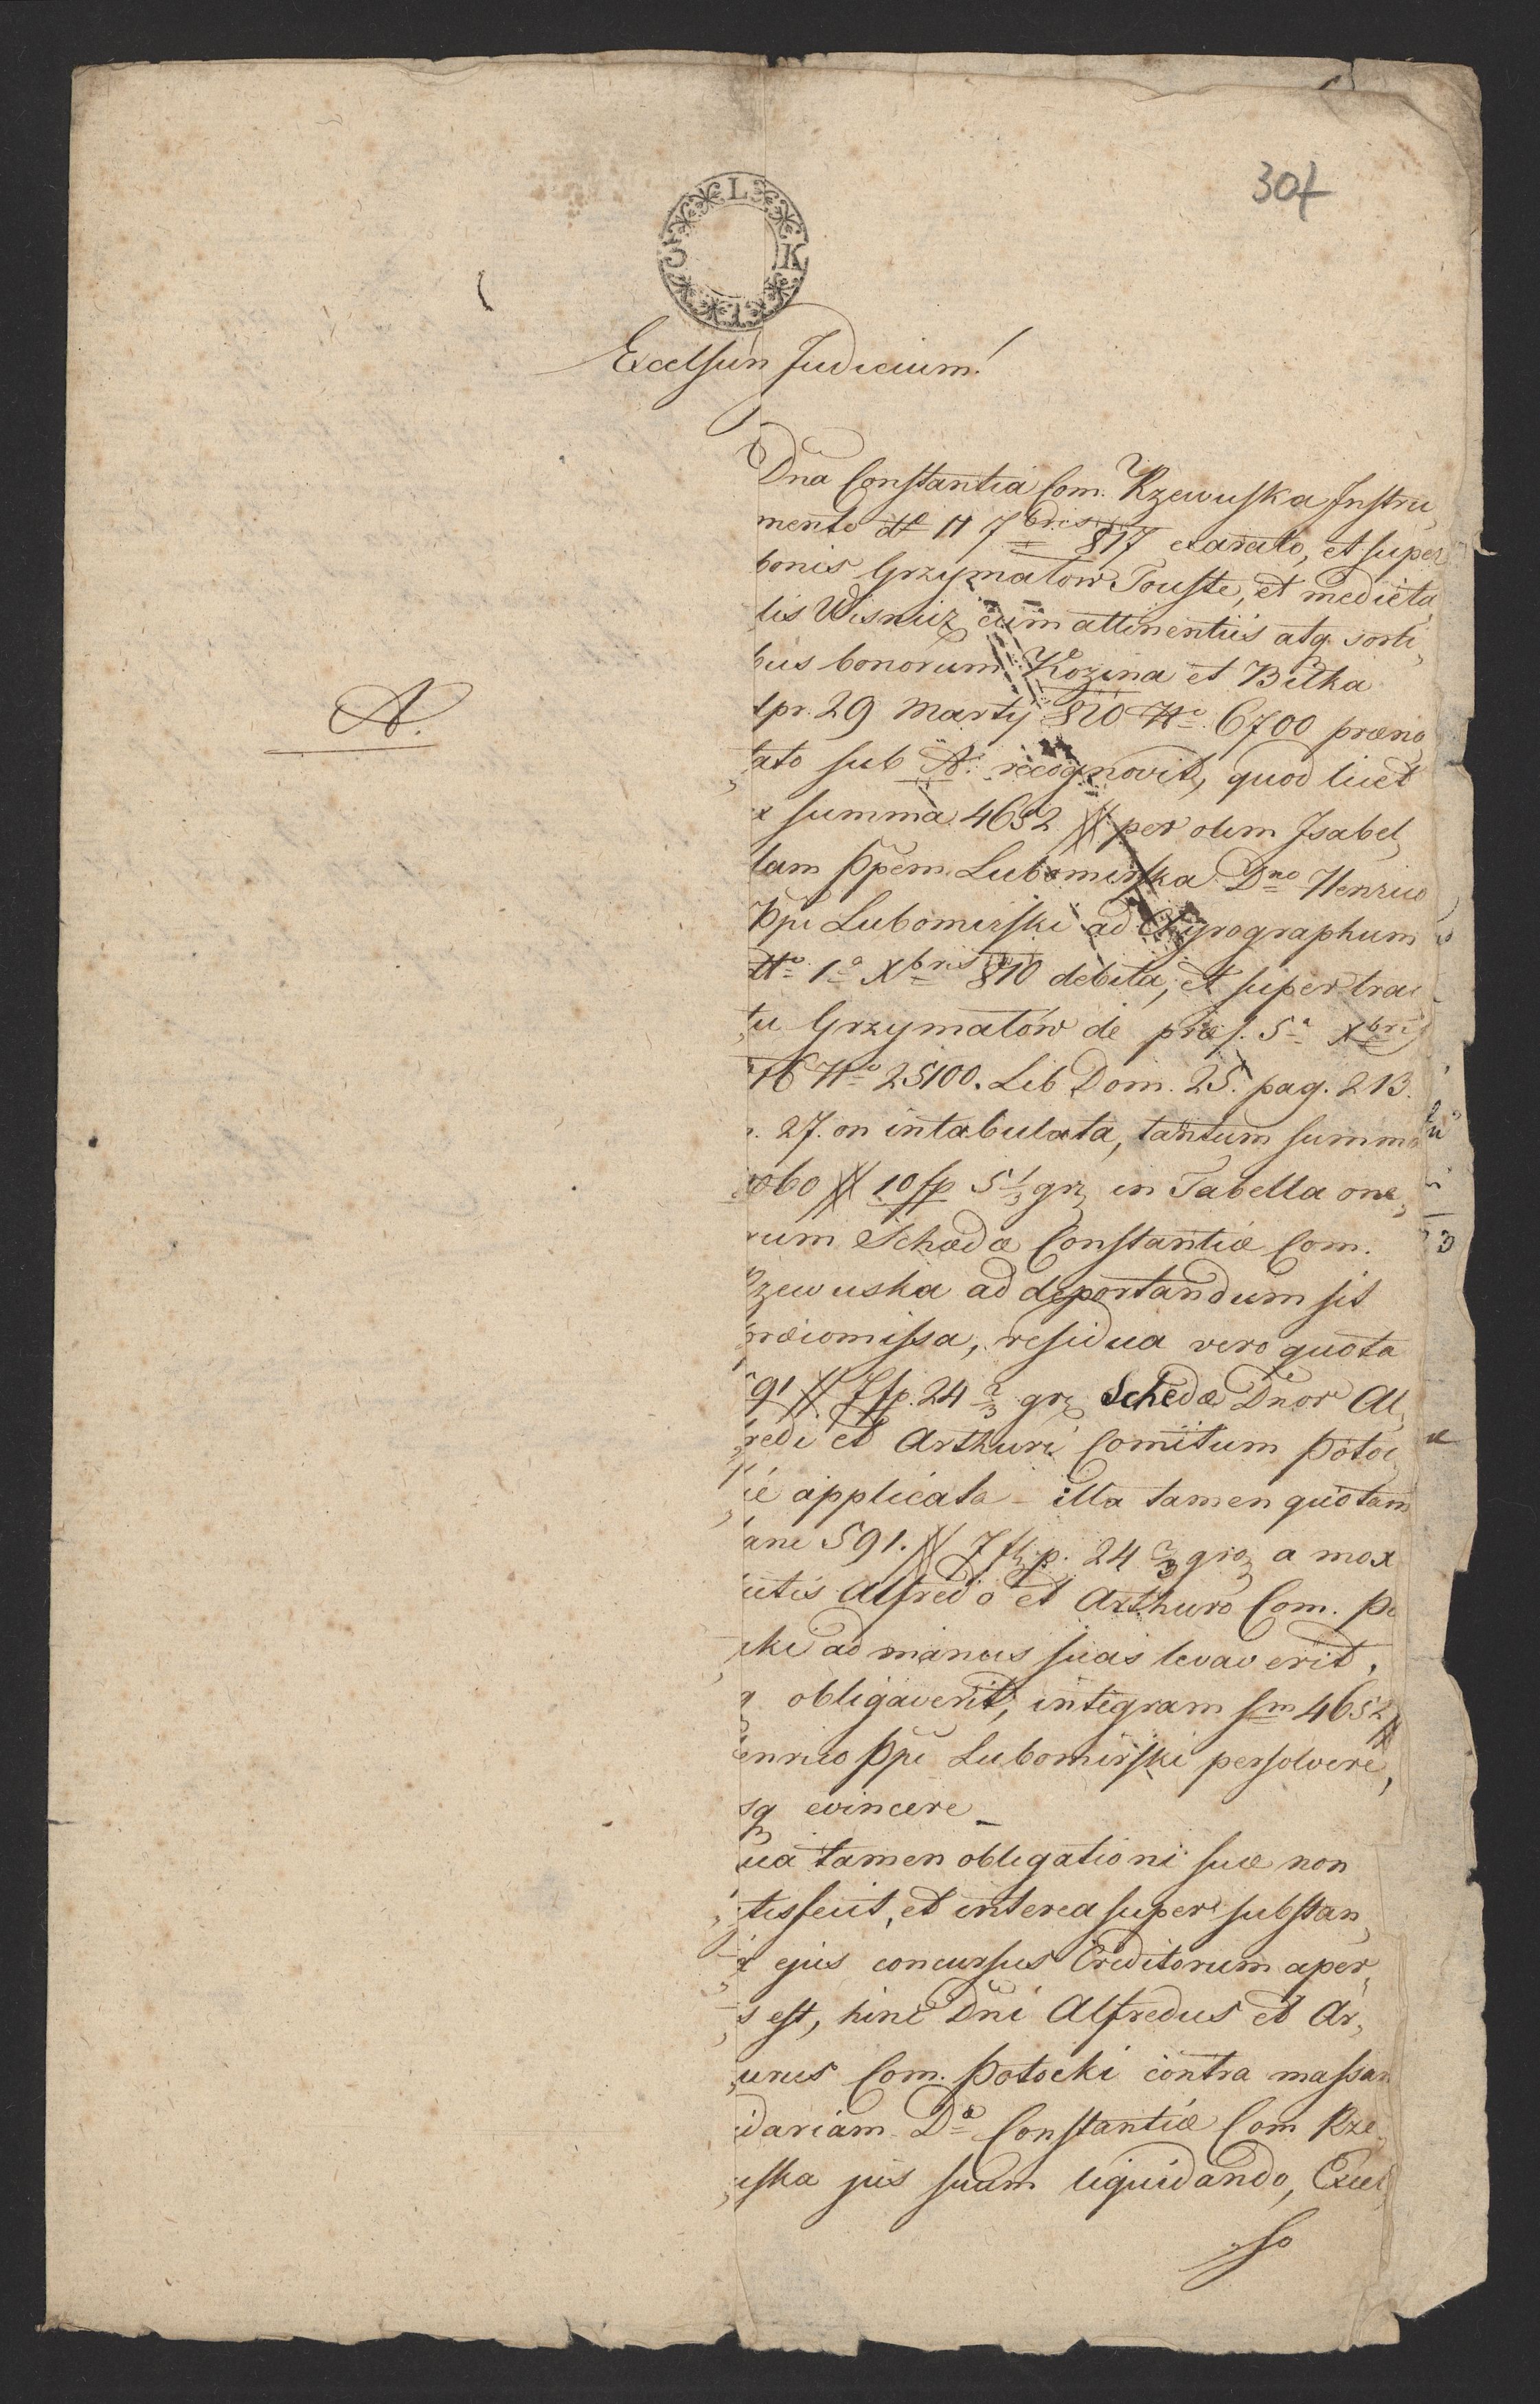 304
L
K
Excelsum Judicium!
Dna Constantia Com. Rzewuska Instru„
mento dt 11 7bris 817 exarato, et super
bonis Grzymałow Touste, et medieta„
tis Wisniuz cum attinentiis atq sorti„
bus bonorum Kozina et Bilka
pr. 29 Martÿ 820 No 6700 prænо„
tato sub A. recognovit, quod licet
summa 4652 # per olim Isabel„
lam Ppem Lubomirska Dno Henrico
Ppi Lubomirski ad Chyrographum
1a Xbris 810 debita, et super trac
tu Grzymałów de præs. 5a Xbris
16 No 25100. Lib Dom. 25. pag. 213.
27. on intabulata, tantum summa
060 # 10 fp 5 1/3 grz in Tabella one„
rum Schædæ Constantiæ Com.
Rzewuska ad deportandum sit
præiomissa, residua vero quota
91 # 7 fp. 24 2/3 grz Schedæ Dnor Al„
redi et Arthuri Comitum Potoc
applicata – illa tamen quotam
ane 591. # 7 fl. p. 24 2/3 groz a mox
utis Alfredo et Arthuro Com. Po
cki ad manus suas levaverit,
q obligaverit, integram sm 4652 #
enrico Ppi Lubomirski persolvere,
sq evincere –
ua tamen obligationi suæ non
tisfecit, et interea super substan„
ejus concursus Creditorum aper„
s est, hinc Dni Alfredus et Ar„
urus Com. Potocki contra massam
idariam Dæ Constantiæ Com Rze„
uska jus suum liquidando, Excel„
so
A.